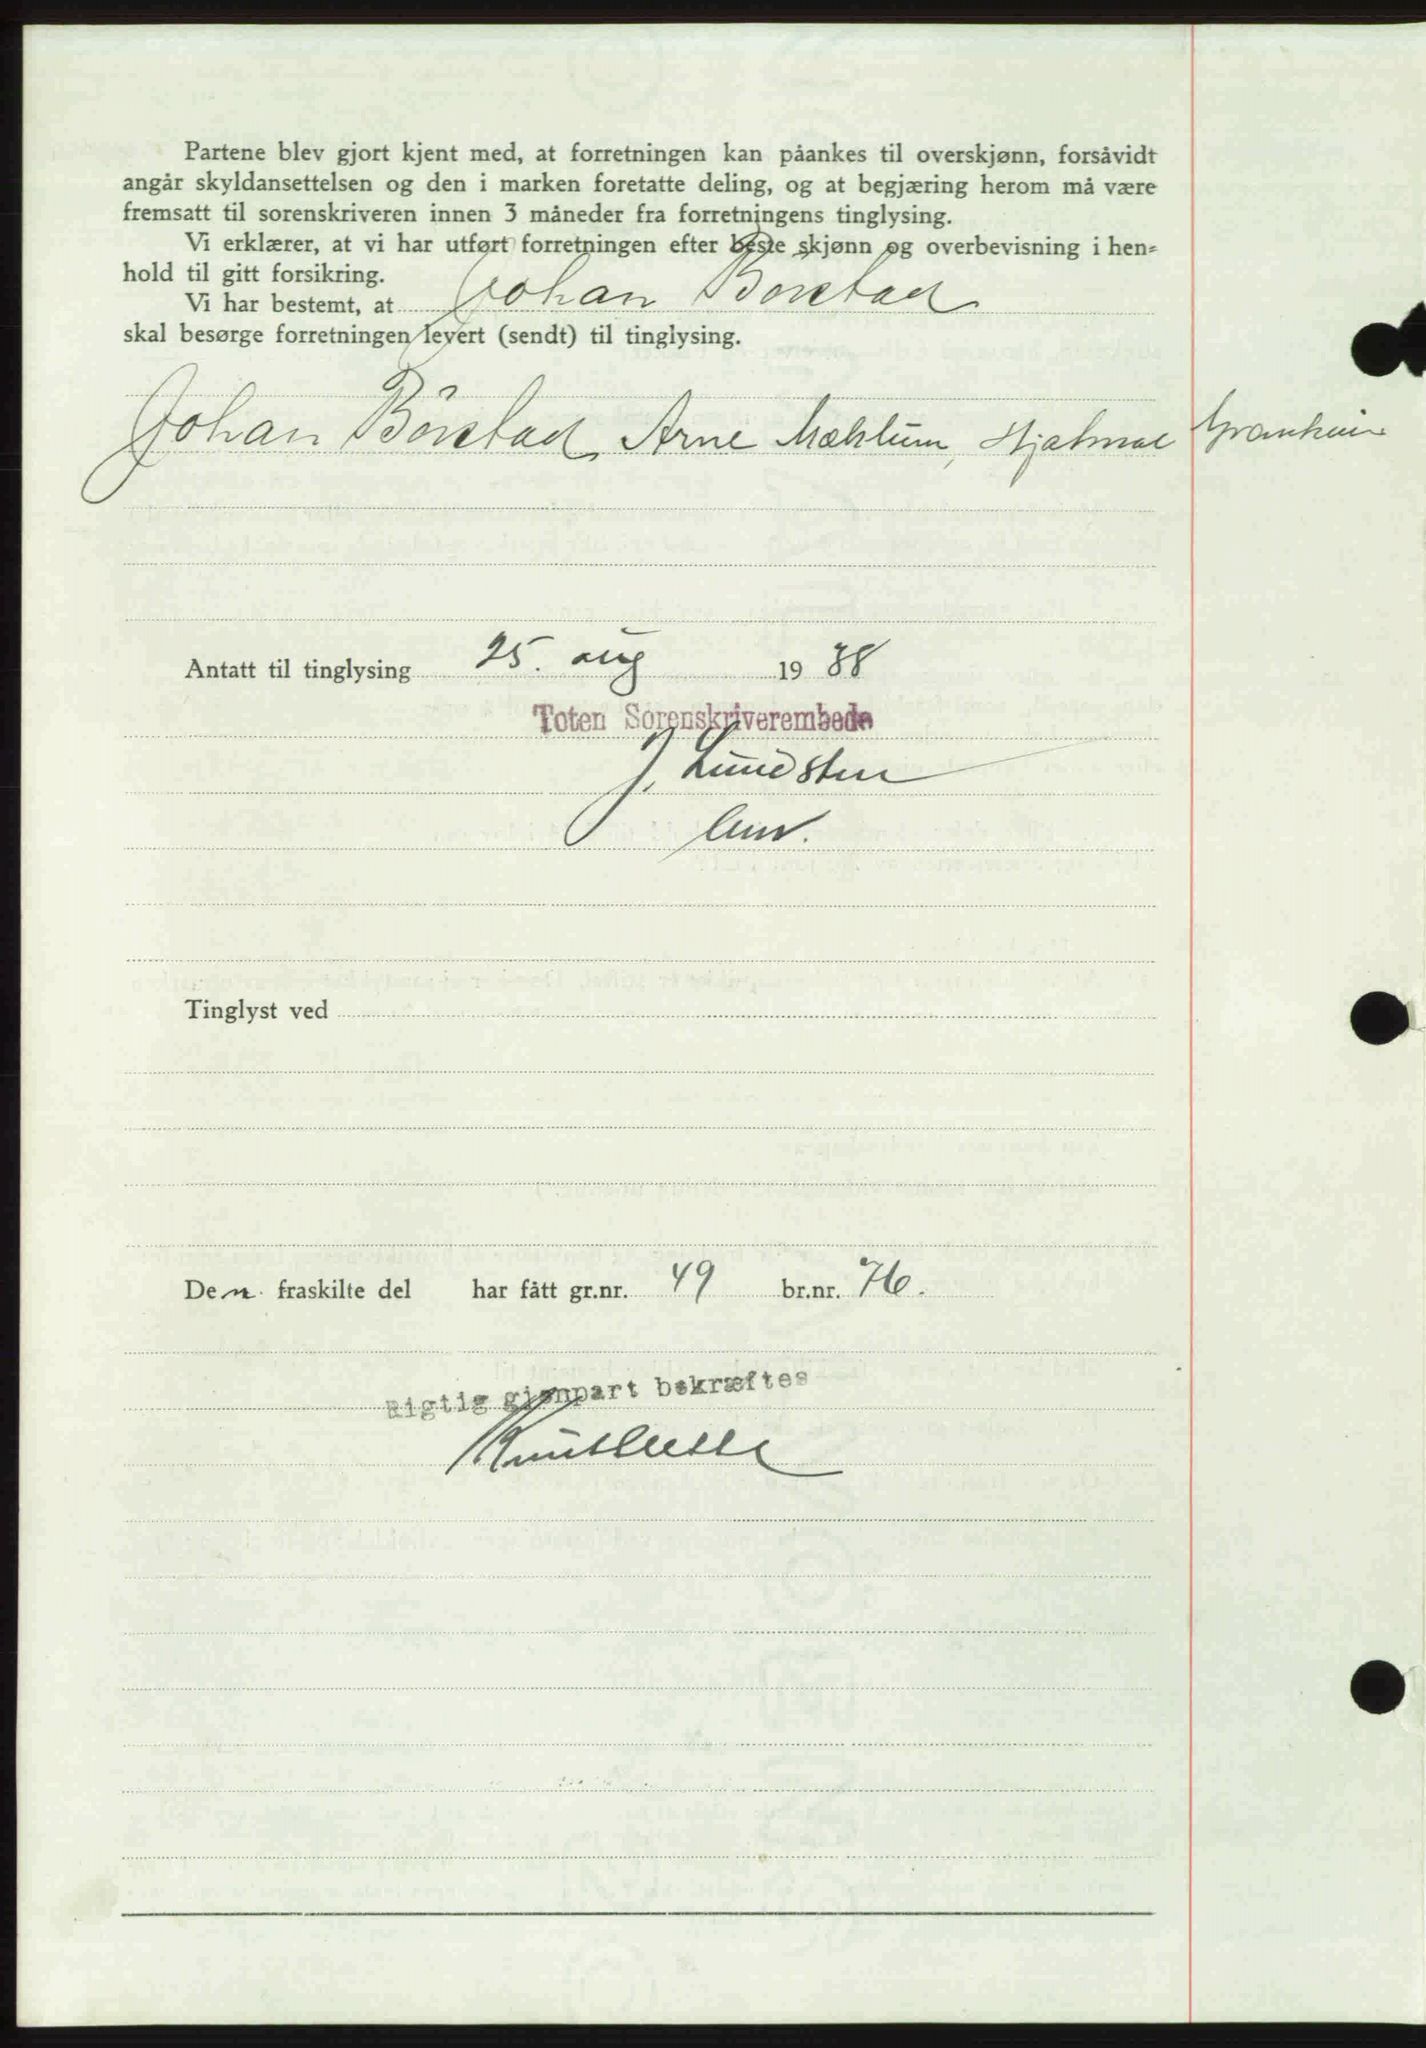 Partene blev gjort kjent med, at forretningen kan påankes til overskjønn, forsåvidt
angår skyldansettelsen og den i marken foretatte deling, og at begjæring herom må være
fremsatt til sorenskriveren innen 3 måneder fra forretningens tinglysing.
Vi erklærer, at vi har utført forretningen efter beste skjønn og overbevisning i hen-
hold til gitt forsikring.
Vi har bestemt, at Johan Börstad
skal besørge forretningen levert (sendt) til tinglysing.
Johan Börstad, Arne Mæhlum, Hjalmar Granheim
Antatt til tinglysing 25. aug 1938
Toten Sorenskriverembede
J. Lundsten
Tinglyst ved
Den fraskilte del har fått gr.nr. 49 br.nr. 76.
Rigtig gjenpart bekræftes